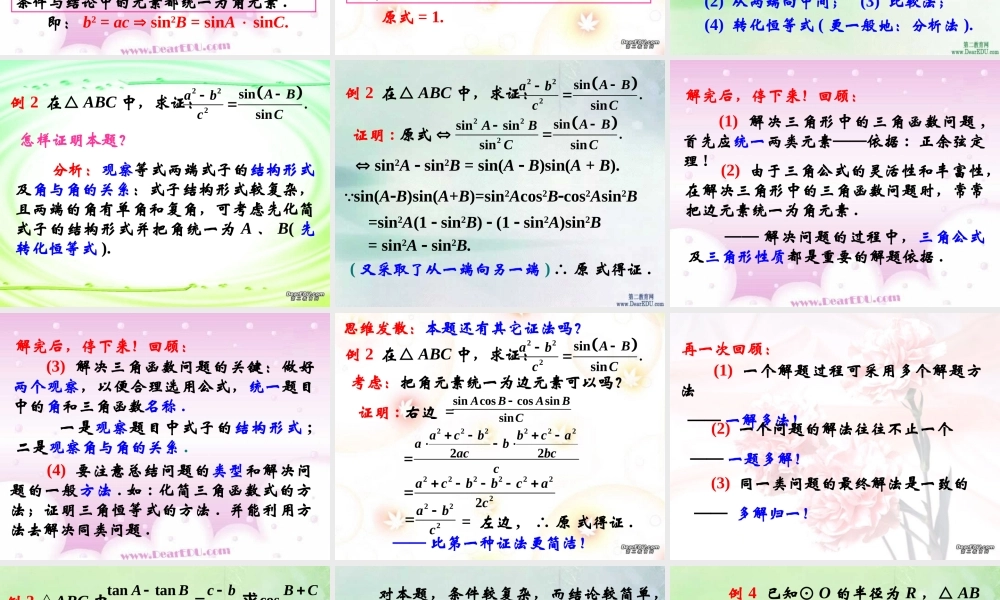 条件与结论中的元素都统一为角元素 .
即：b² = ac ⇒ sin²B = sinA · sinC.
www.DearEDU.com
原式 = 1.
(2) 从两端向中间； (3) 比较法；
(4) 转化恒等式 ( 更一般地：分析法 ).
第二教育网
www.DearEDU.com
例 2 在△ ABC 中，求证： (a² − b²)/c² = sin(A − B)/sin C .
怎样证明本题？
分析：观察等式两端式子的结构形式
及角与角的关系：式子结构形式较复杂，
且两端的角有单角和复角，可考虑先化简
式子的结构形式并把角统一为 A 、 B( 先
转化恒等式 ).
DearEDU.com
第二教育网
例 2 在△ ABC 中，求证： (a² − b²)/c² = sin(A − B)/sin C .
证明：原式 ⇔ (sin² A − sin² B)/sin² C = sin(A − B)/sin C .
⇔ sin²A − sin²B = sin(A − B)sin(A + B).
∵sin(A−B)sin(A+B)=sin²Acos²B−cos²Asin²B
=sin²A(1 − sin²B) − (1 − sin²A)sin²B
= sin²A − sin²B.
( 又采取了从一端向另一端 ) ∴ 原 式得证 .
第二教育网
www.DearEDU.com
解完后，停下来！回顾：
(1) 解决三角形中的三角函数问题，
首先应统一两类元素——依据：正余弦定
理！
(2) 由于三角公式的灵活性和丰富性，
在解决三角形中的三角函数问题时，常常
把边元素统一为角元素 .
—— 解决问题的过程中，三角公式
及三角形性质都是重要的解题依据 .
www.DearEDU.com
解完后，停下来！回顾：
(3) 解决三角函数问题的关键：做好
两个观察，以便合理选用公式，统一题目
中的角和三角函数名称 .
一是观察题目中式子的结构形式；
二是观察角与角的关系 .
(4) 要注意总结问题的类型和解决问
题的一般方法 .如：化简三角函数式的方
法；证明三角恒等式的方法 . 并能利用方
法去解决同类问题 .
www.DearEDU.com
思维发散：本题还有其它证法吗？
例 2 在△ ABC 中，求证： (a² − b²)/c² = sin(A − B)/sin C .
考虑：把角元素统一为边元素可以吗？
证明：右边 = (sin A cos B − cos A sin B)/sin C
= (a · (a² + c² − b²)/2ac − b · (b² + c² − a²)/2bc)/c
= (a² + c² − b² − b² − c² + a²)/2c²
= (a² − b²)/c² = 左边， ∴ 原 式得证 .
—— 比第一种证法更简洁！
DearEDU.com
第二教育网
再一次回顾：
(1) 一个解题过程可采用多个解题方
法
—— 一解多法！
(2) 一个问题的解法往往不止一个
—— 一题多解！
(3) 同一类问题的最终解法是一致的
—— 多解归一！
DearEDU.com
第二教育网
tan A − tan B c − b 求cos B + C
对本题，条件较复杂，而结论较简单，
例 4 已知⊙ O 的半径为 R ，△ AB